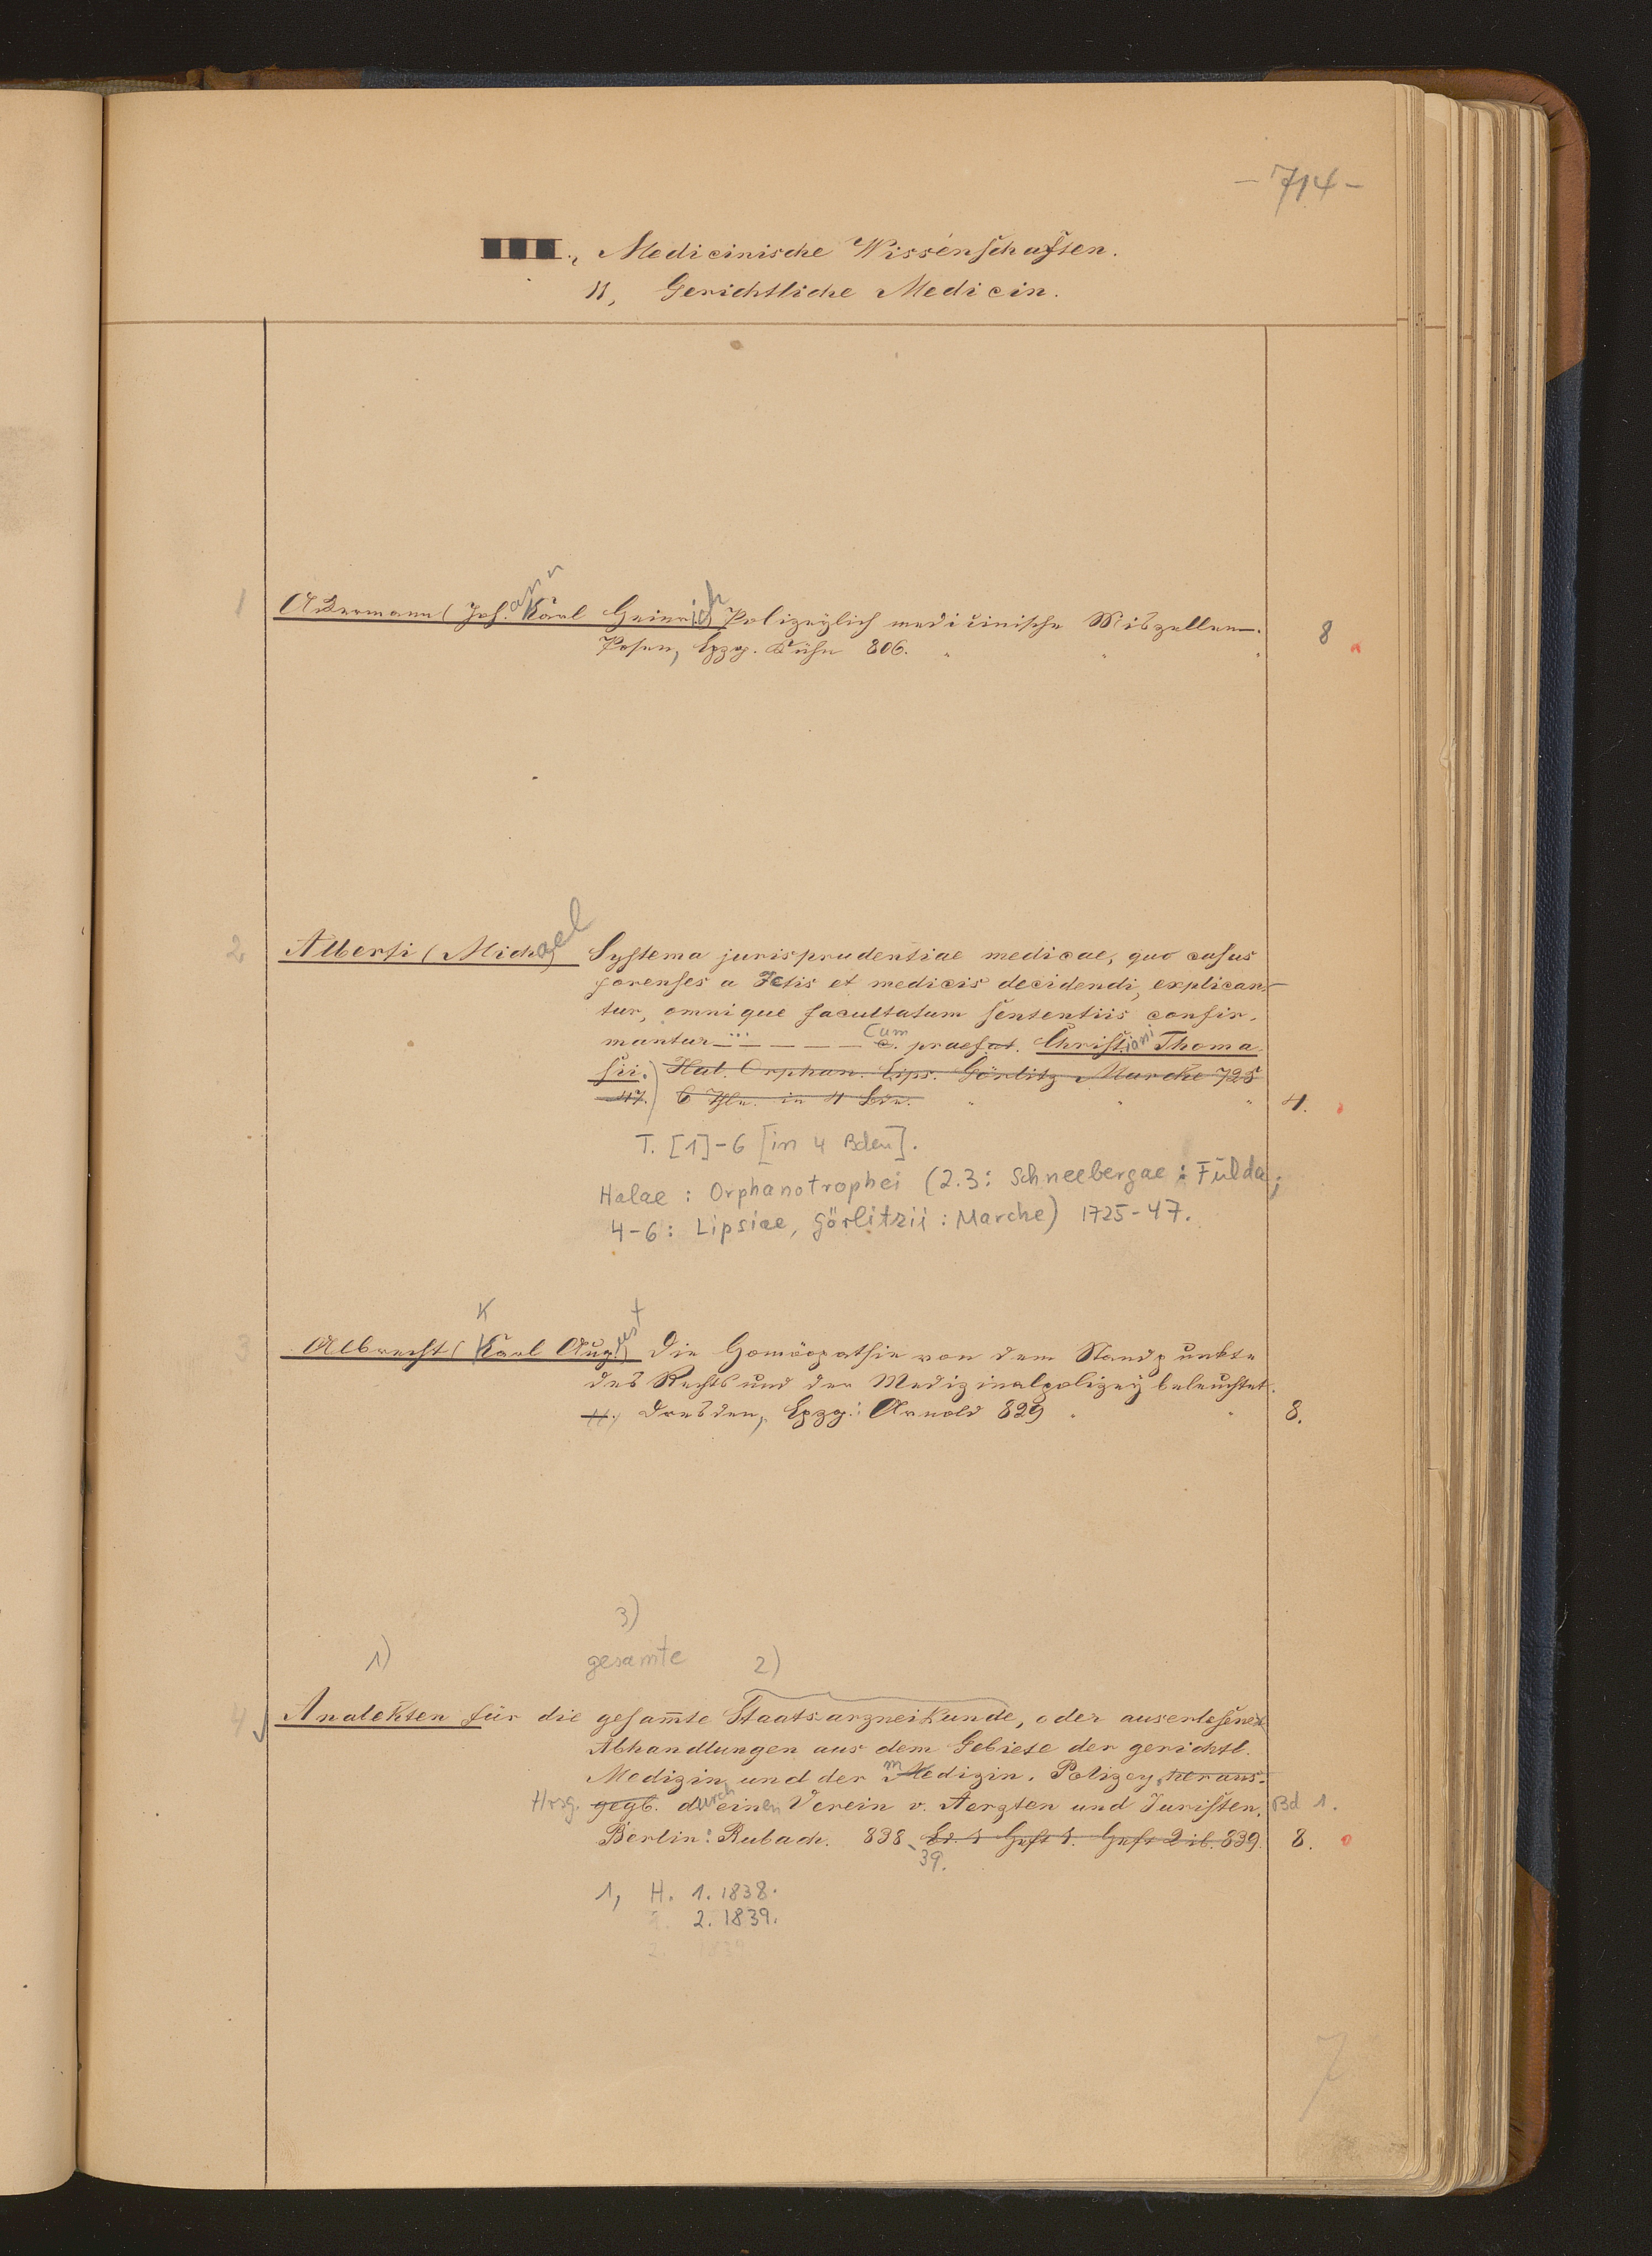 - 714 -
III., Medicinische Wissenschaften.
11, Gerichtliche Medicin.
1 Ackermann (Johann Karl Heinrich Polizeylich medicinische Miszellen.
Posen, Lpzg. Kühn 806. 8
2 Alberti (Michael Systema jurisprudentiae medicae, quo casus
forenses a JCtis et medicis decidendi, explican-
tur, omnique facultatum sententiis confir-
mantur ... — — — Cum praefat. Christiani Thoma-
sii.) Hal. Orphan. Lips. Görlitz Marche 725
47. 6 Thle. in 4 Bdn. 4.
T. [1]-6 [in 4 Bden].
Halae : Orphanotrophei (2.3: Schneebergae : Fulda;
4-6: Lipsiae, Görlitzii : Marche) 1725-47.
K
3 Albrecht (Karl August Die Homöopathie von dem Standpunkte
des Rechts und der Medizinalpolizey beleuchtet.
Dresden, Lpzg: Arnold 829 8.
3)
1) gesamte 2)
4 Analekten für die gesam̅te Staatsarzneikunde, oder auserlesene
Abhandlungen aus dem Gebiete der gerichtl.
Medizin und der medizin. Polizey, heraus-
Hrsg. gegb. durch einen Verein v. Aerzten und Juristen. Bd 1.
Berlin: Rubach. 838 Bd. 1 Heft 1. Heft 2 ib. 839. 8.
-39.
1, H. 1. 1838.
2. 1839.
7